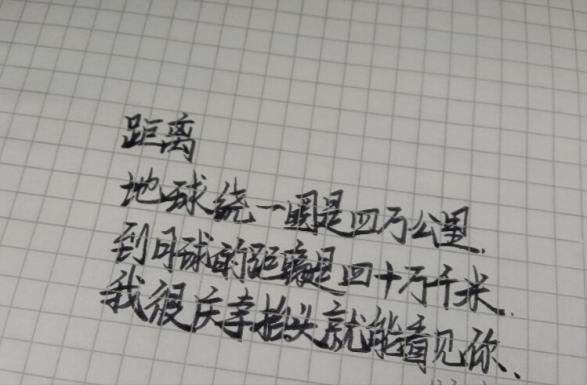 距离
地球绕一圈是四万公里.
到月球的距离是四十万千米.
我很庆幸抬头就能看见你.